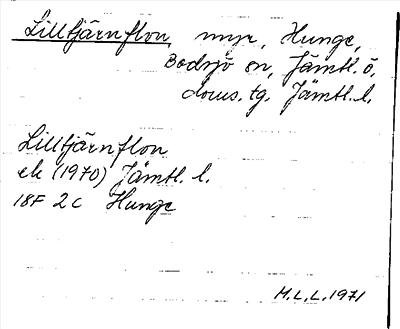 Lilltjärnflon, myr, Hunge,
Bodsjö sn, Jämtl. ö.
doms.tg. Jämtl. l.
Lilltjärnflon
ek (1970) Jämtl. l.
18F 2c Hunge
M.L.L. 1971